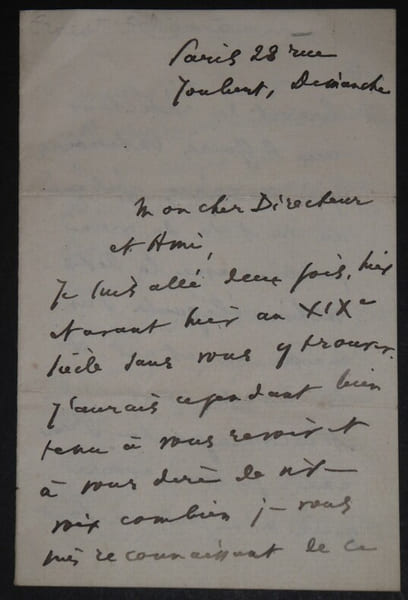 Paris 28 rue
Joubert, Dimanche
Mon cher Directeur
et Ami,
Je suis allé deux fois, hier
et avant hier au XIXe
siècle sans vous y trouver.
J'aurais cependant bien
tenu à vous revoir et
à vous dire de vive
voix combien je vous
suis reconnaissant de ce